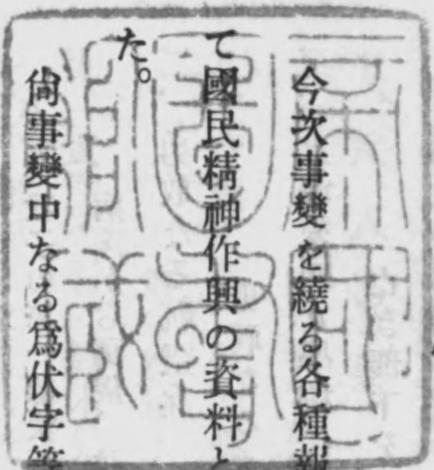 今次事變を繞る各種報
て國民精神作興の資料と
た。
尙事變中なる爲伏字等